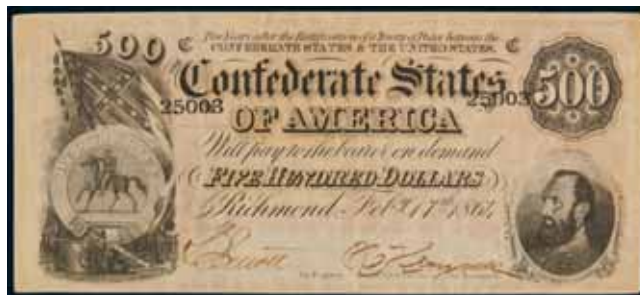 500 C Two Years after the Ratification of a Treaty of Peace between the C
CONFEDERATE STATES & THE UNITED STATES.
500
Confederate States
25003 25003
OF AMERICA
Will pay to the bearer on demand
FIVE HUNDRED DOLLARS
Richmond Feby. 17th. 1864